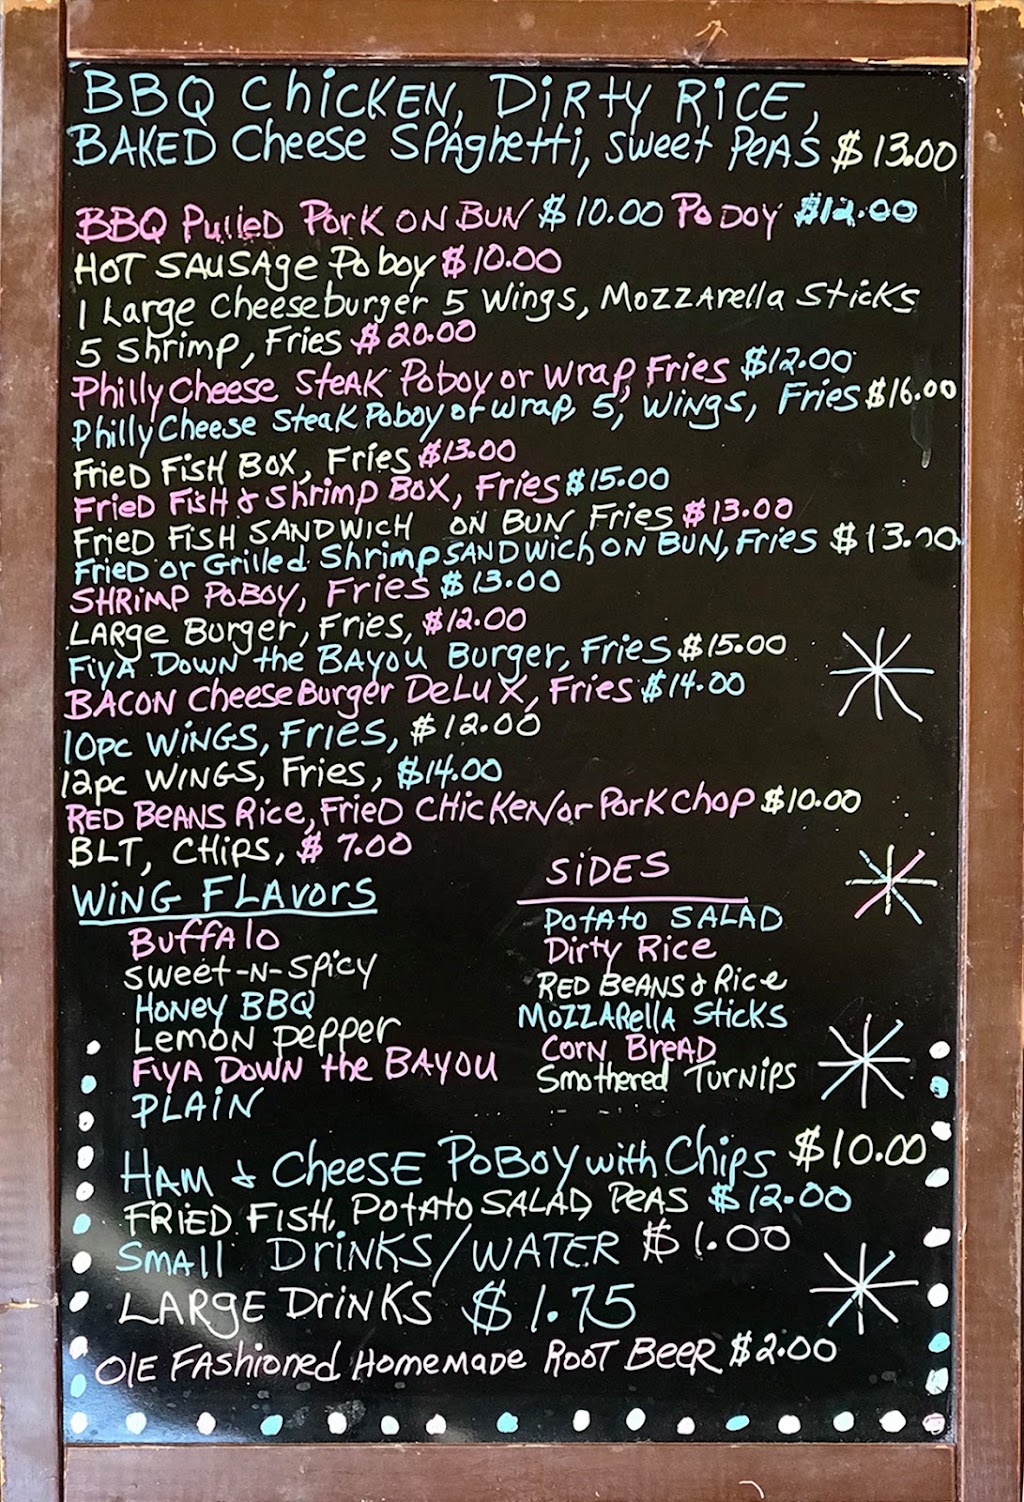 BBQ Chicken, Dirty Rice,
Baked Cheese Spaghetti, Sweet Peas $13.00
BBQ Pulled Pork on Bun $10.00 PoDOY $12.00
Hot Sausage Poboy $10.00
1 Large Cheeseburger 5 Wings, Mozzarella Sticks
5 Shrimp, Fries $20.00
Philly Cheese Steak Poboy or Wrap, Fries $12.00
Philly Cheese Steak Poboy or Wrap, 5, Wings, Fries $16.00
Fried Fish Box, Fries $13.00
Fried Fish & Shrimp Box, Fries $15.00
Fried Fish Sandwich on Bun Fries $13.00
Fried or Grilled Shrimp Sandwich on Bun, Fries $13.00
Shrimp Poboy, Fries $13.00
Large Burger, Fries, $12.00
Fiya Down the Bayou Burger, Fries $15.00
Bacon Cheese Burger Delux, Fries $14.00
10pc Wings, Fries, $12.00
12pc Wings, Fries, $14.00
Red Beans Rice, Fried Chicken/or Pork Chop $10.00
BLT, Chips, $7.00
Wing Flavors
Buffalo
Sweet-N-Spicy
Honey BBQ
Lemon Pepper
Fiya Down the Bayou
Plain
Sides
Potato Salad
Dirty Rice
Red Beans & Rice
Mozzarella Sticks
Corn Bread
Smothered Turnips
Ham & Cheese Poboy with Chips $10.00
Fried Fish, Potato Salad, Peas $12.00
Small Drinks/Water $1.00
Large Drinks $1.75
Ole Fashioned Homemade Root Beer $2.00